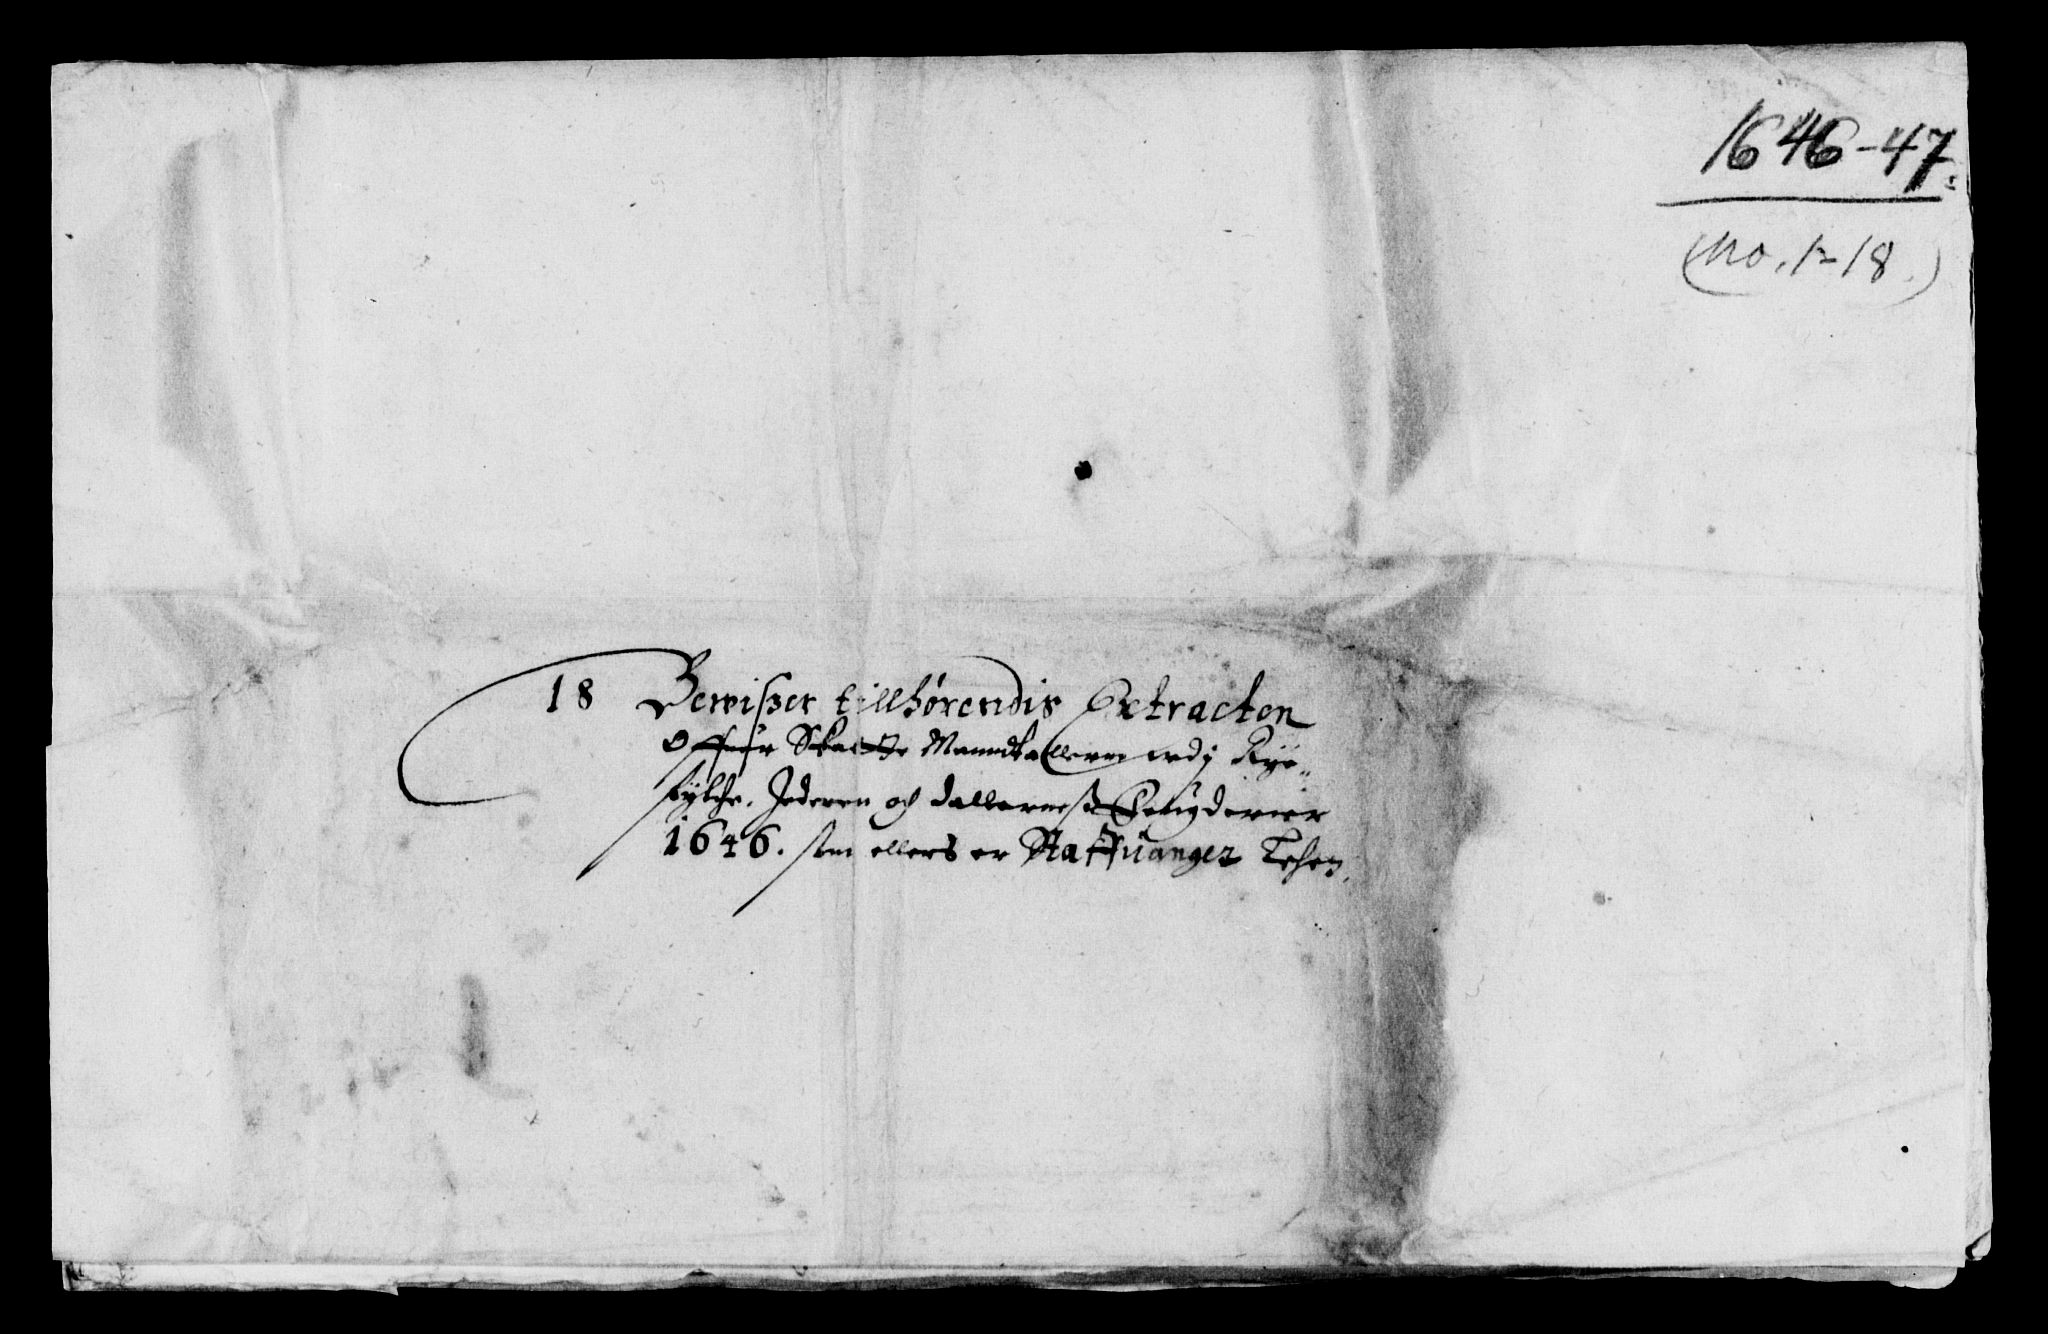 1646-47.
(No. 1-18.)
18 Bewißer tillhørendis Extracten
Offuer Skatte Manndtallerne udj Rye-
fylche, Jederen och Dallerneß Fougderier
1646. som ellers er Staffuanger Lehen.